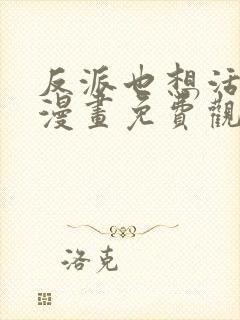 反派也想活
漫畫免費觀
洛克